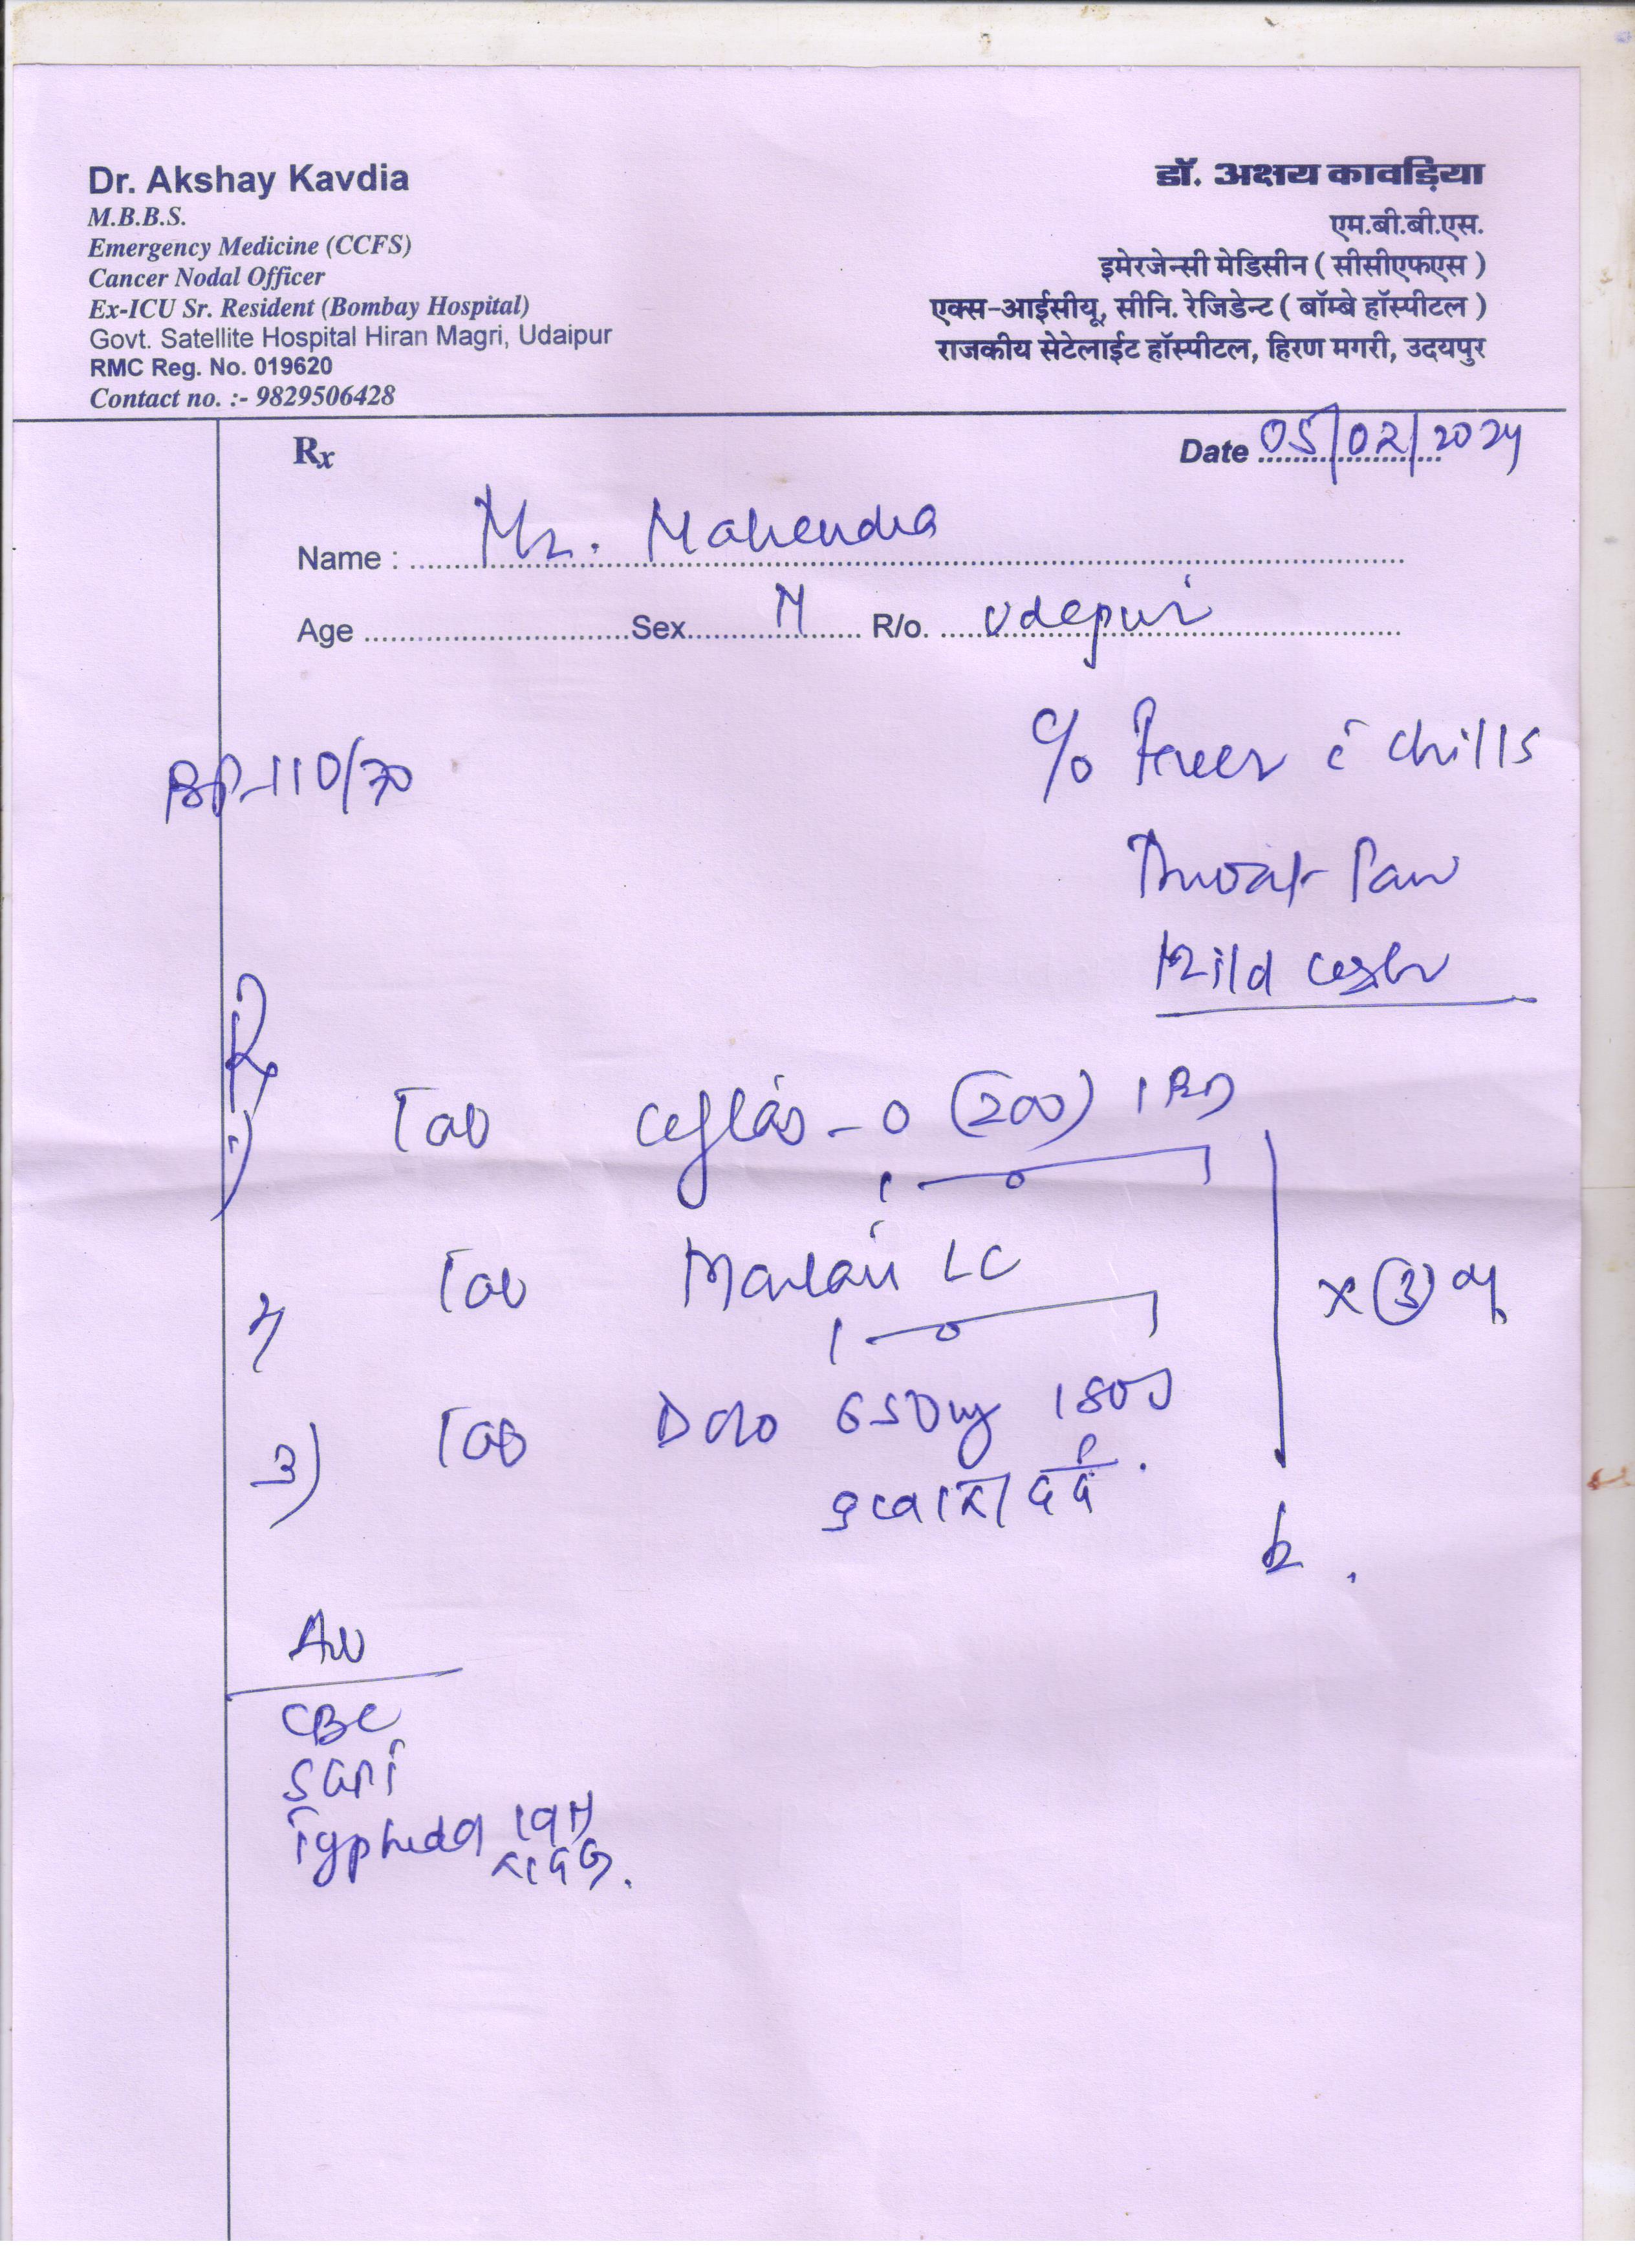 Dr. Akshay Kavdia
M.B.B.S.
Emergency Medicine (CCFS)
Cancer Nodal Officer
Ex-ICU Sr. Resident (Bombay Hospital)
Govt. Satellite Hospital Hiran Magri, Udaipur
RMC Reg. No. 019620
Contact no. :- 9829506428
डॉ. अक्षय कावड़िया
एम.बी.बी.एस.
इमेरजेन्सी मेडिसीन ( सीसीएफएस )
एक्स-आईसीयू, सीनि. रेजिडेन्ट ( बॉम्बे हॉस्पीटल )
राजकीय सेटेलाईट हॉस्पीटल, हिरण मगरी, उदयपुर
Rx
Date 05/02/2024
Name : Mr. Mahendra
Age Sex M R/o. Udepur
C/o Fever c̄ chills
BP-110/70
Throat Pain
Mild cough
Rx
1) Tab -O (200) 1 BD
1 — 0 — 1
2) Tab LC
1 — 0 — 1
x (3) d
3) Tab Dolo 650mg 1 SOS
बुखार/दर्द.
Adv
CBC
SGPT
Typhidot IgM